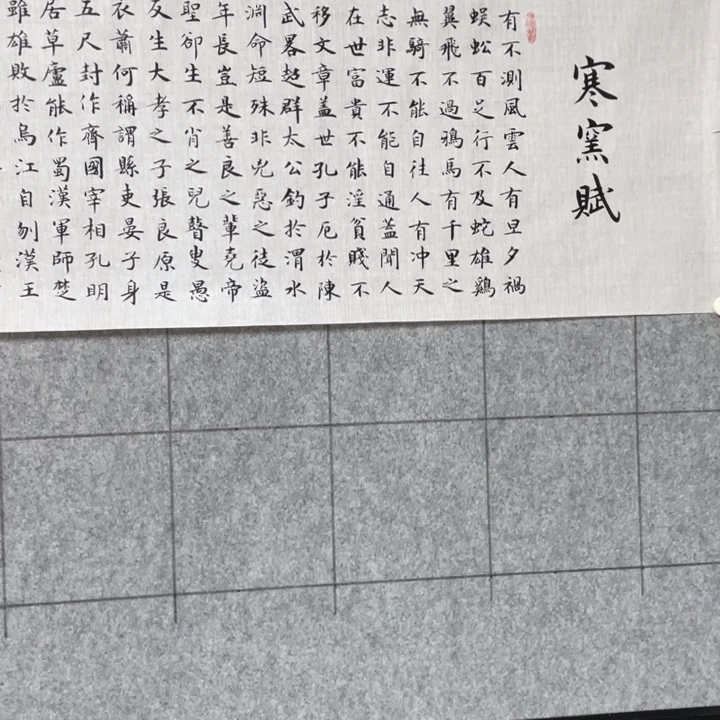 寒窯賦
有不測風雲人有旦夕禍
蜈蚣百足行不及蛇雄鷄
翼飛不過鴉馬有千里之
無騎不能自往人有冲天
志非運不能自通蓋聞人
在世富貴不能淫貧賤不
移文章蓋世孔子厄於陳
武畧超群太公釣於渭水
淵命短殊非兇惡之徒盜
年長豈是善良之輩堯帝
聖卻生不肖之兒瞽叟愚
反生大孝之子張良原是
衣蕭何稱謂縣吏晏子身
五尺封作齊國宰相孔明
居草廬能作蜀漢軍師楚
雖雄敗於烏江自刎漢王